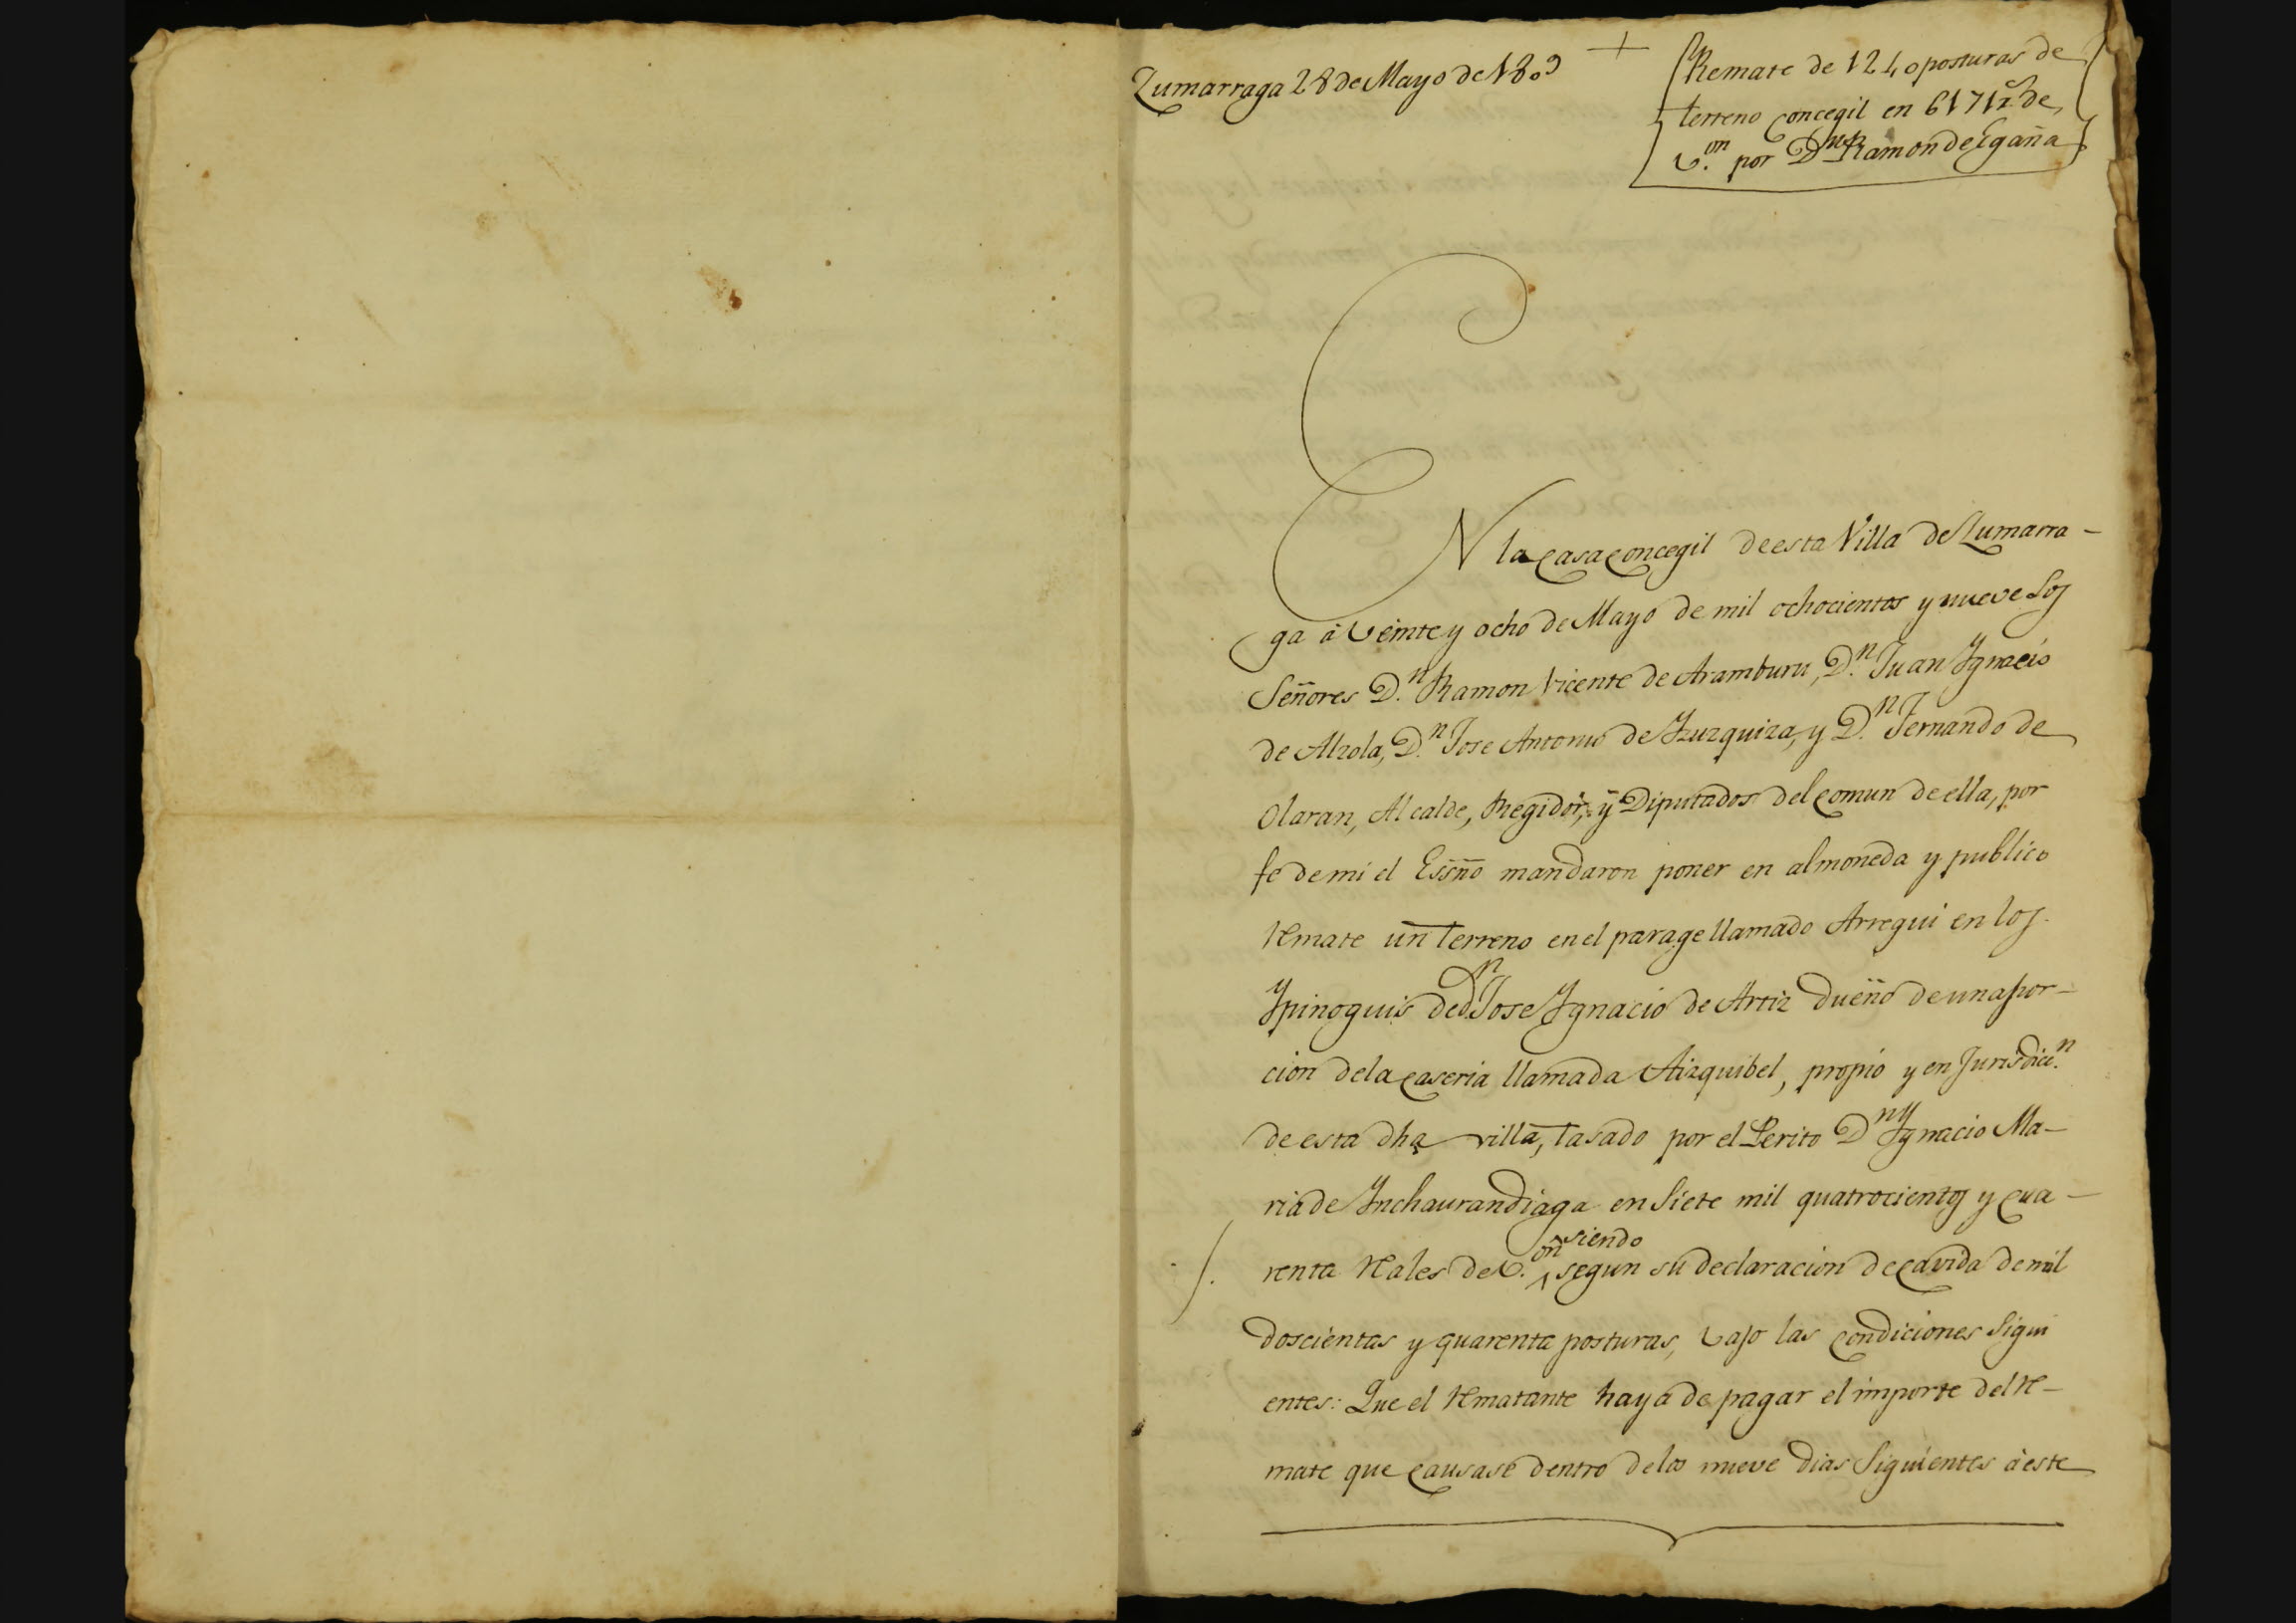 Zumarraga 28 de Mayo de 1809
+
Remate de 1240 posturas de
terreno Concegil en 6171 rs. de
v.on por Dn. Ramon de Egaña
EN la Casa Concegil de esta Villa de Zumarra-
ga à veinte y ocho de Mayo de mil ochocientos y nueve Los
Señores D.n Ramon Vicente de Aramburu, D.n Juan Ygnacio
de Alzola, D.n Jose Antonio de Yzuzquiza, y D.n Fernando de
Olaran, Alcalde, Regidor, y Diputados del comun de ella, por
fe de mi el Essno mandaron poner en almoneda y publico
Remate un terreno en el parage llamado Arregui en los
Ypinoguis de D.n Jose Ygnacio de Artiz dueño de una por-
cion de la caseria llamada Aizquibel, propio y en Jurisdicc.n
de esta dha villa, tasado por el Perito Dn Ygnacio Ma-
ria de Ynchaurandiaga en Siete mil quatrocientos y Cua-
renta Reales de v.on siendo segun su declaracion de cavida de mil
doscientas y quarenta posturas, vajo las Condiciones Sigui
entes: Que el Rematante haya de pagar el importe del Re-
mate que causase dentro de los nueve dias Siguientes à este